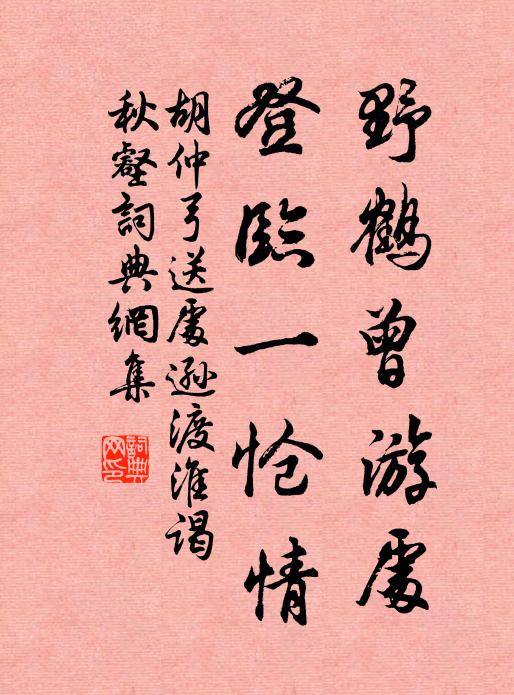 野鶴曾游處
登臨一愴情
胡仲弓送處遜渡淮謁
秋壑詞典網集
詞典網印